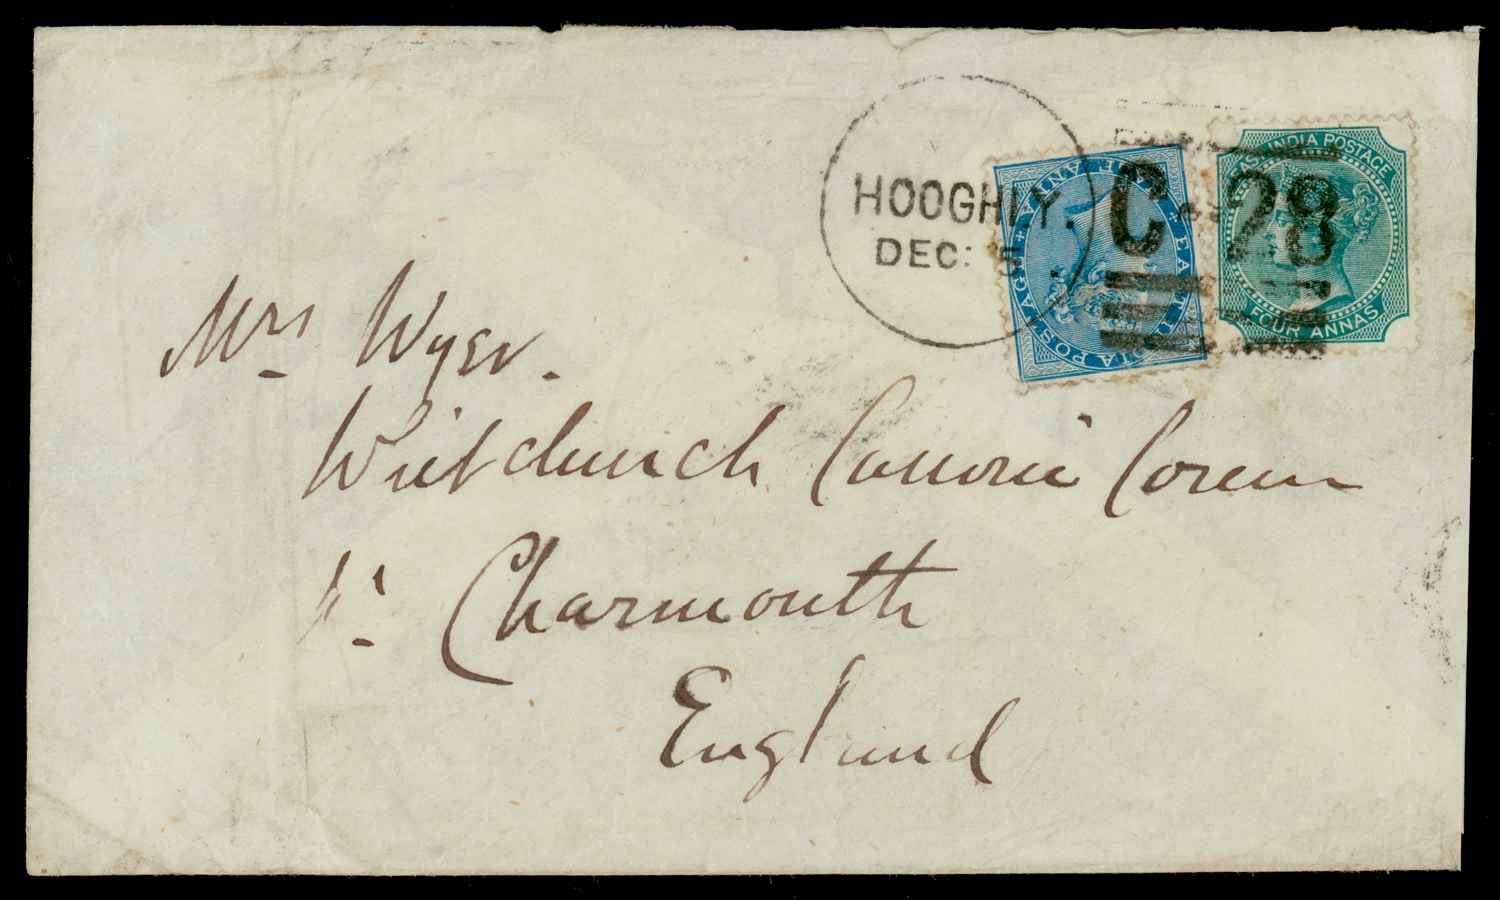 HOOGHLY.
DEC: 5
C 28
HALF ANNA
EAST INDIA POSTAGE
EAST INDIA POSTAGE
FOUR ANNAS
Mrs Wyer.
Whitchurch Canoni Corum
Nr Charmouth
England